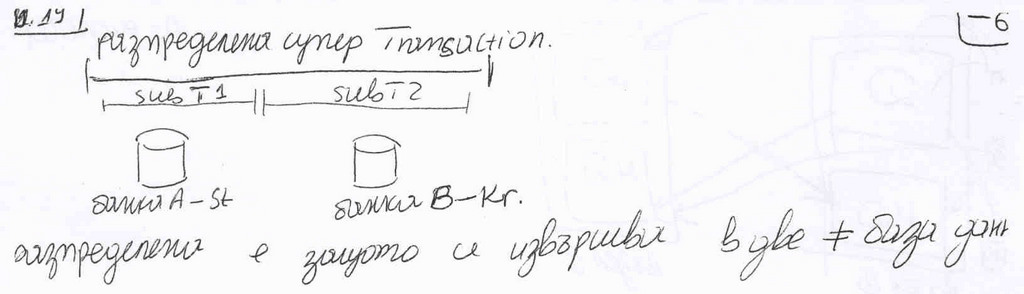 11.19
-6
разпределена супер Transaction.
subT1 subT2
банка A-St банка B-Kr.
разпределена е защото се извършва в две ≠ база данн